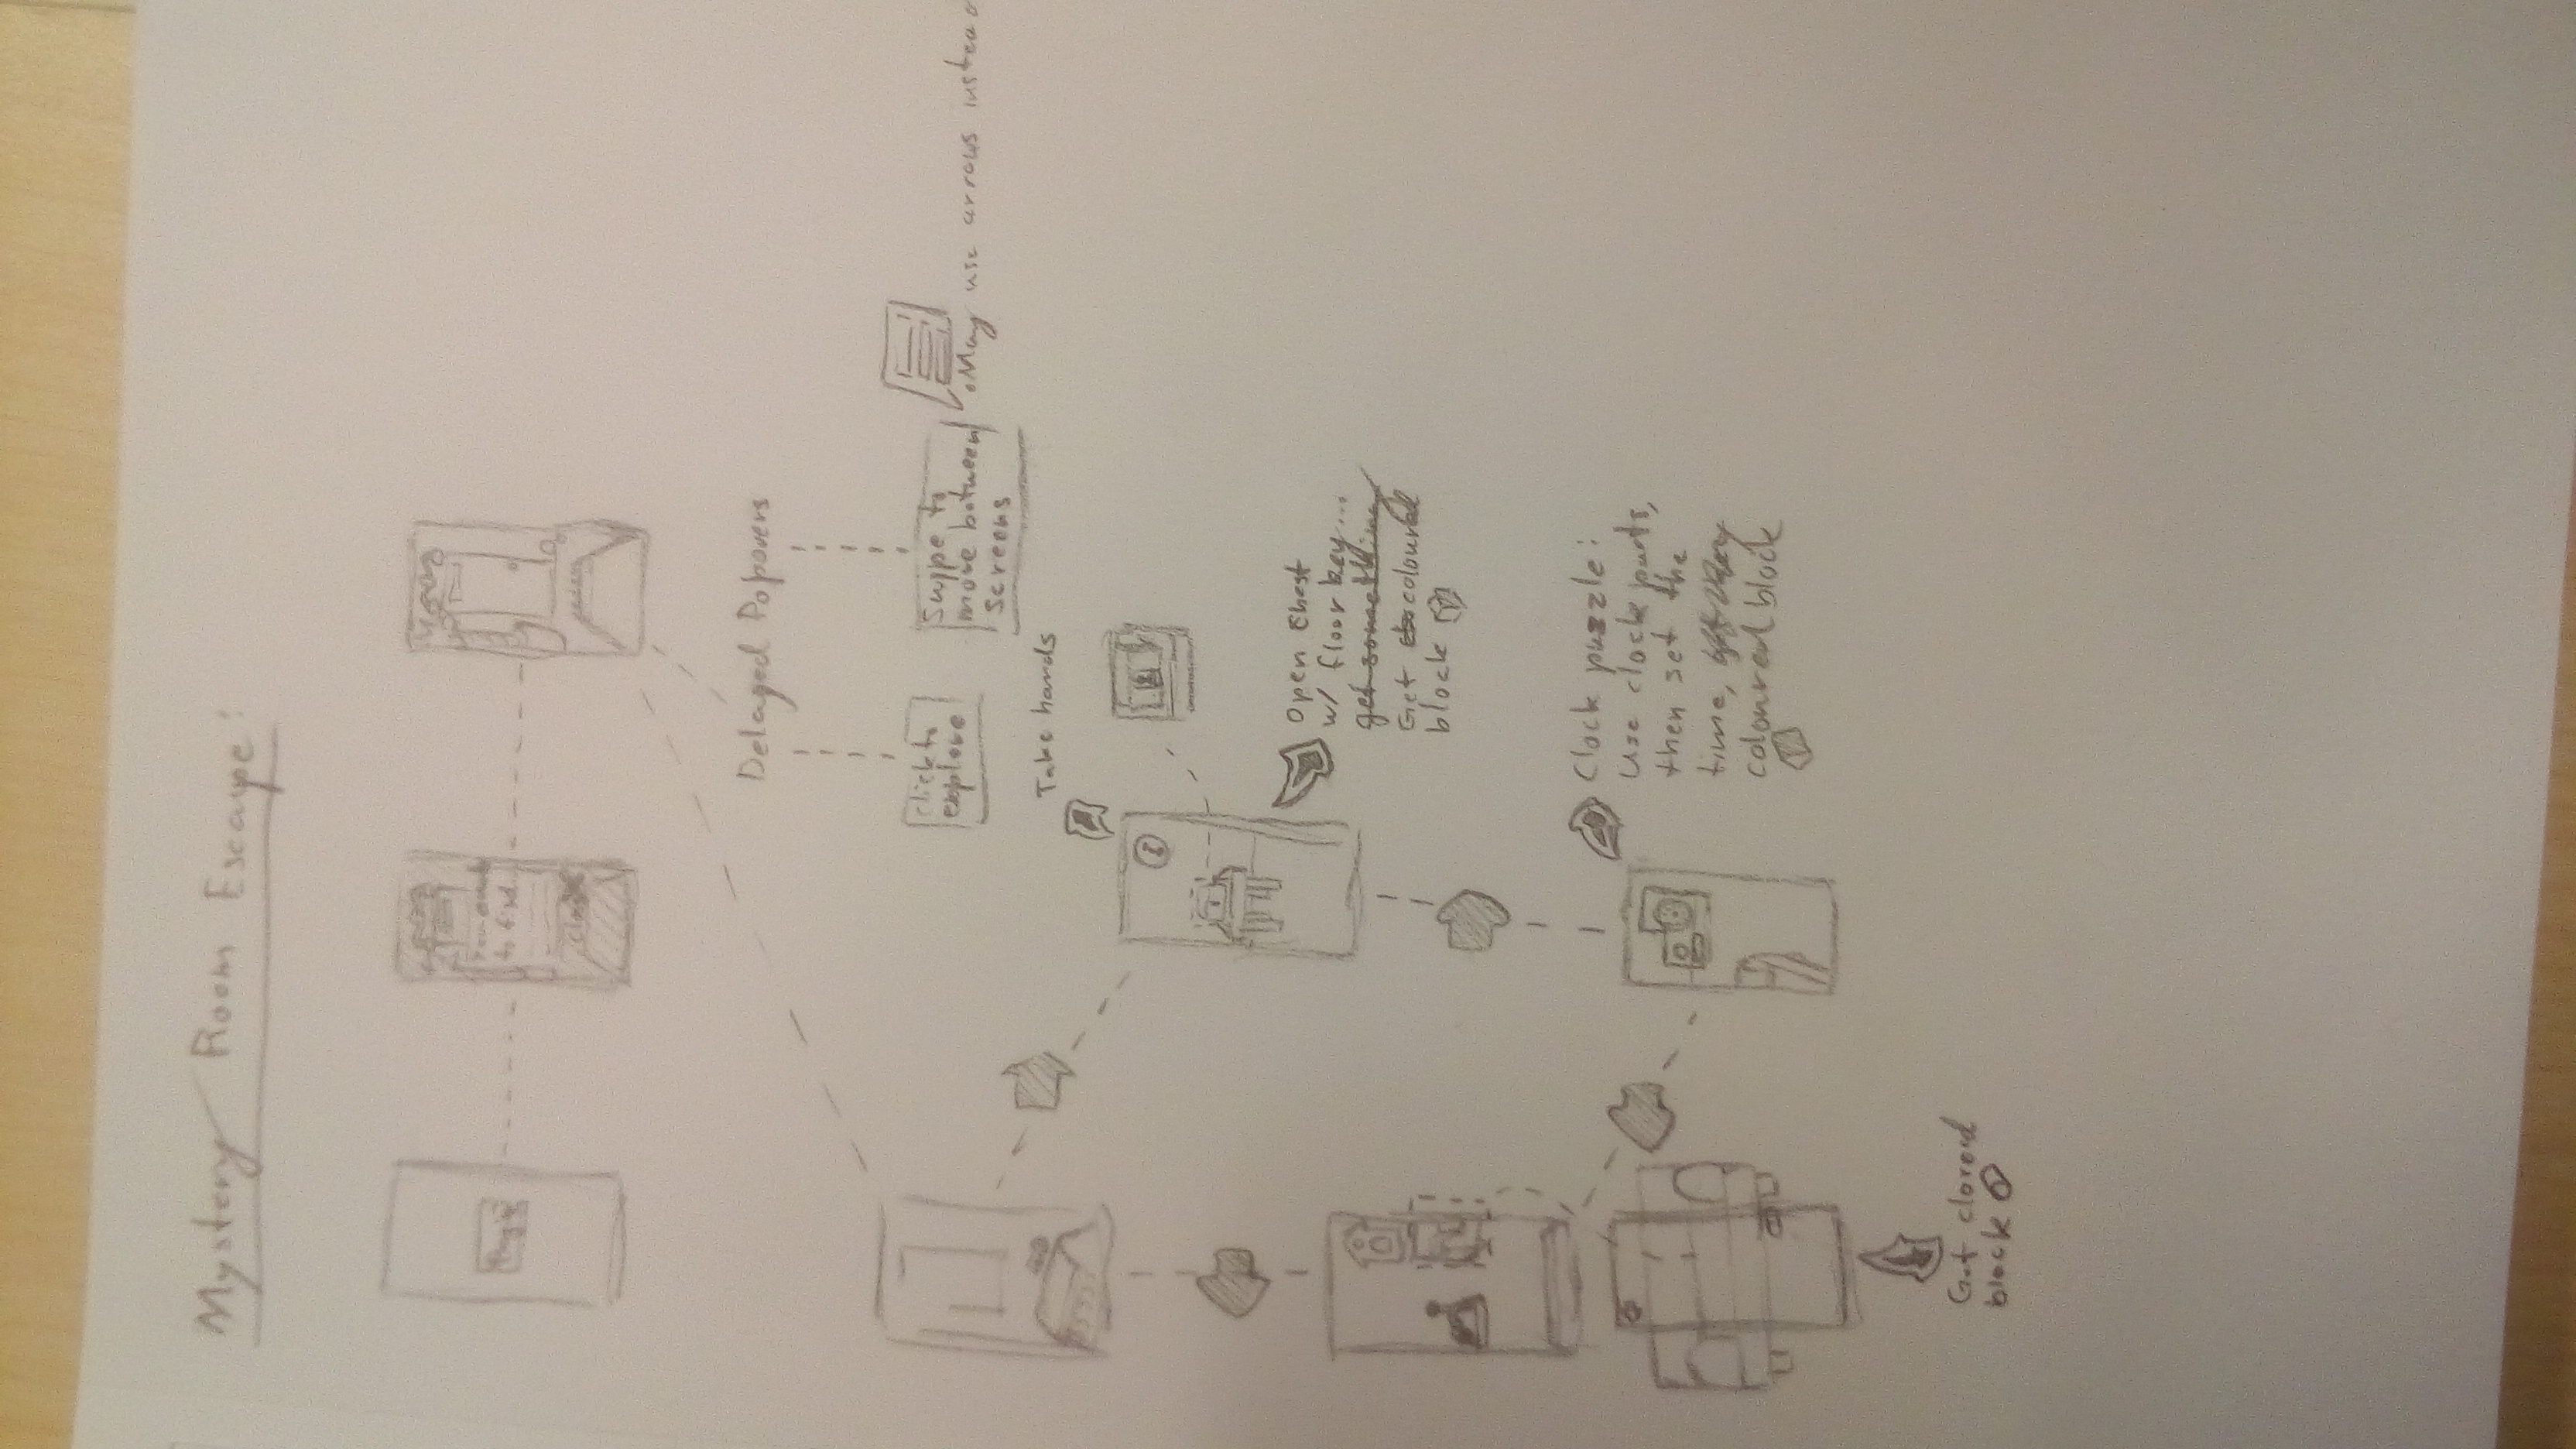 Mystery Room Escape:
to find...
Delayed Popovers
click to
explore
Swipe to
move between
screens
•May use arrows instead
Take hands
Open Chest
w/ floor key...
get something
Get coloured
block
Clock puzzle:
Use clock parts,
then set the
time,
coloured block
Get clored
block